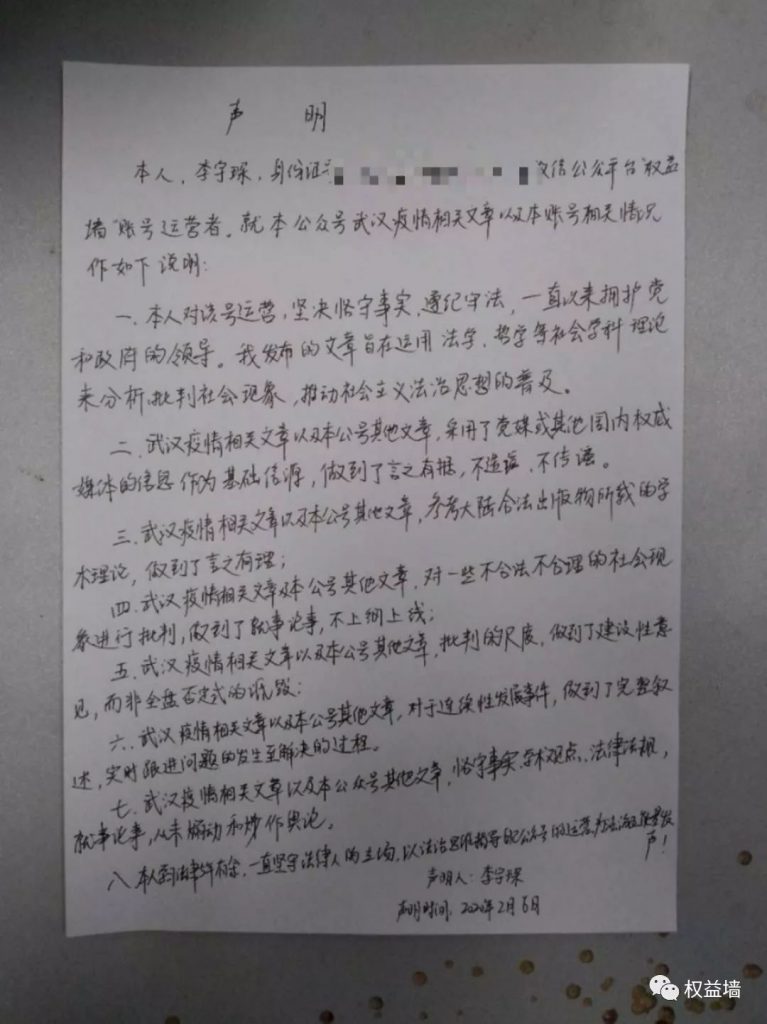 声 明
本人,李宇琛,身份证号 微信公众平台“权益
墙”账号运营者。就本公众号武汉疫情相关文章以及本账号相关情况
作如下说明:
一、本人对该号运营,坚决恪守事实、遵纪守法,一直以来拥护党
和政府的领导。我发布的文章旨在运用法学、哲学等社会学科理论
来分析、批判社会现象,推动社会主义法治思想的普及。
二、武汉疫情相关文章以及本公号其他文章,采用了党媒或其他国内权威
媒体的信息作为基础信源,做到了言之有据,不造谣、不传谣。
三、武汉疫情相关文章以及本公号其他文章,参考大陆合法出版物所载的学
术理论,做到了言之有理;
四、武汉疫情相关文章及本公号其他文章,对一些不合法不合理的社会现
象进行批判,做到了就事论事,不上纲上线;
五、武汉疫情相关文章以及本公号其他文章,批判的尺度,做到了建设性意
见,而非全盘否定式的诋毁;
六、武汉疫情相关文章以及本公号其他文章,对于连续性发展事件,做到了完整叙
述,实时跟进问题的发生至解决的过程。
七、武汉疫情相关文章以及本公众号其他文章,恪守事实、学术观点、法律法规,
就事论事,从未煽动和炒作舆论。
八、本人 法律 一直坚守法律人的立场,以法治思维指导 公众号的运营, 法治 发
声!
声明人:李宇琛
声明时间:2020年2月6日
权益墙